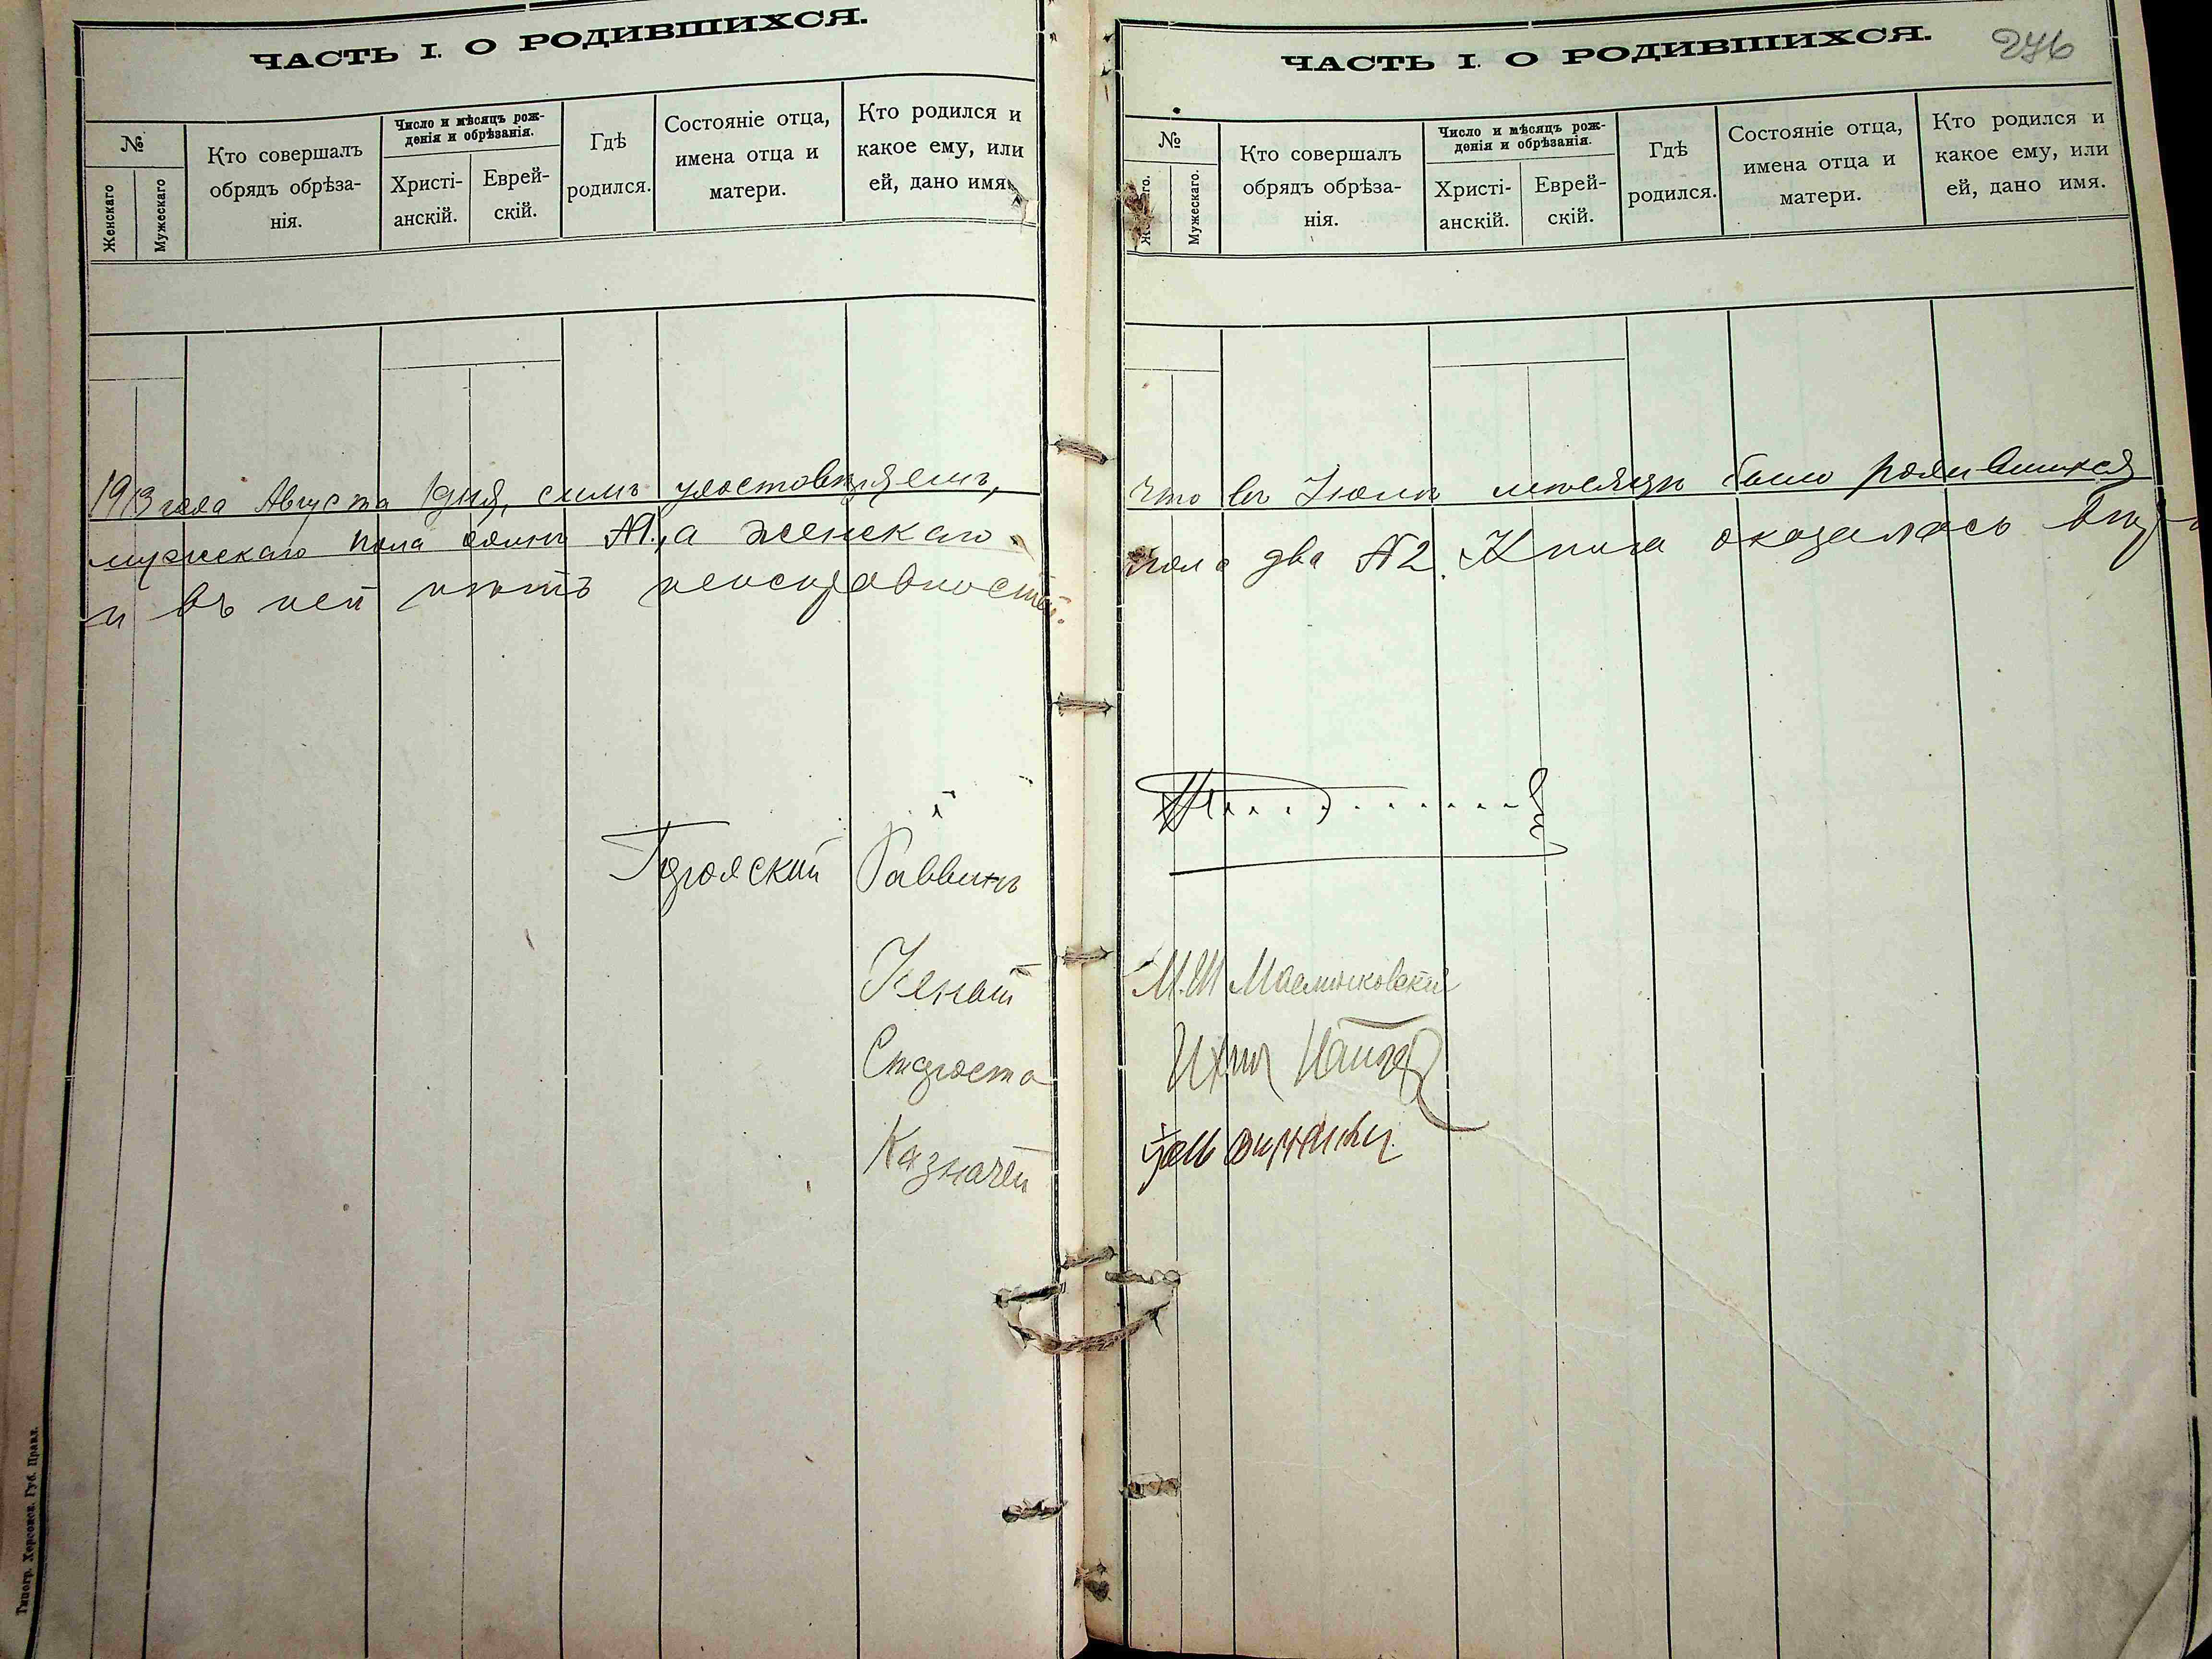 ЧАСТЬ I. О РОДИВШИХСЯ.
№
Женскаго
Мужескаго
Кто совершалъ
обрядъ обрѣза-
нія.
Число и мѣсяцъ рож-
денія и обрѣзанія.
Христі-
анскій.
Еврей-
скій.
Гдѣ
родился.
Состояніе отца,
имена отца и
матери.
Кто родился и
какое ему, или
ей, дано имя.
1913 года Августа 1 дня, симъ удостовѣряемъ,
мужескаго пола одинъ №1, а женскаго
и въ ней нѣтъ неисправностей.
Раввинъ
Староста
Казначей
Типогр. Херсонск. Губ. Правл.
ЧАСТЬ I. О РОДИВШИХСЯ.
276
№
Женскаго.
Мужескаго.
Кто совершалъ
обрядъ обрѣза-
нія.
Число и мѣсяцъ рож-
денія и обрѣзанія.
Христі-
анскій.
Еврей-
скій.
Гдѣ
родился.
Состояніе отца,
имена отца и
матери.
Кто родился и
какое ему, или
ей, дано имя.
что въ Іюлѣ мѣсяцѣ было родившихся
пола два №2. Книга оказалась